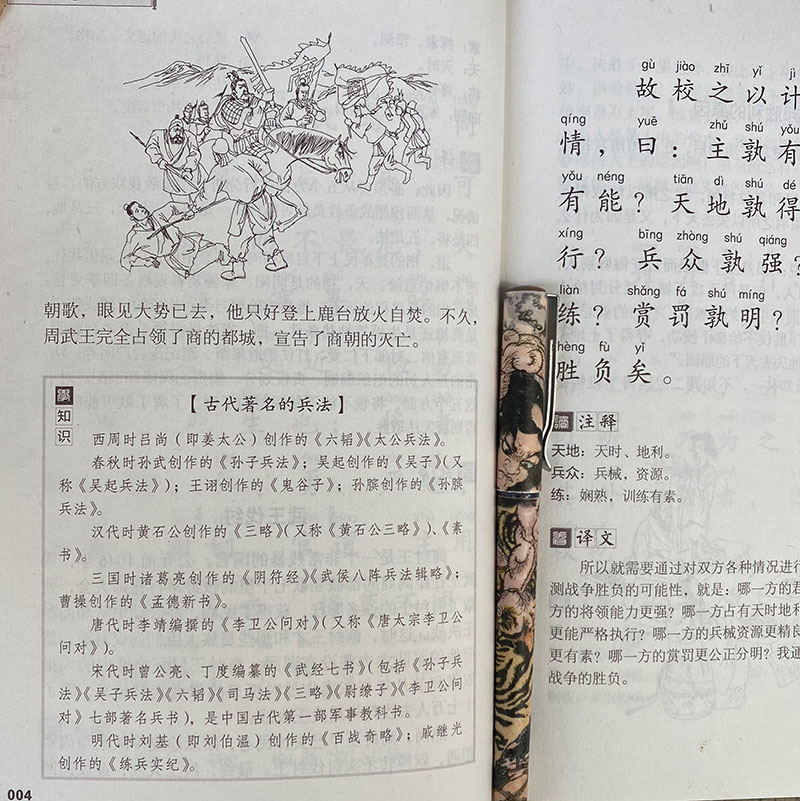 朝歌，眼见大势已去，他只好登上鹿台放火自焚。不久，
周武王完全占领了商的都城，宣告了商朝的灭亡。
知识
【古代著名的兵法】
西周时吕尚（即姜太公）创作的《六韬》《太公兵法》。
春秋时孙武创作的《孙子兵法》；吴起创作的《吴子》（又
称《吴起兵法》）；王诩创作的《鬼谷子》；孙膑创作的《孙膑
兵法》。
汉代时黄石公创作的《三略》（又称《黄石公三略》）、《素
书》。
三国时诸葛亮创作的《阴符经》《武侯八阵兵法辑略》；
曹操创作的《孟德新书》。
唐代时李靖编撰的《李卫公问对》（又称《唐太宗李卫公
问对》）。
宋代时曾公亮、丁度编纂的《武经七书》（包括《孙子兵
法》《吴子兵法》《六韬》《司马法》《三略》《尉缭子》《李卫公问
对》七部著名兵书），是中国古代第一部军事教科书。
明代时刘基（即刘伯温）创作的《百战奇略》；戚继光
创作的《练兵实纪》。
004
gù jiào zhī yǐ jì
故校之以计
qíng yuē zhǔ shú yǒu
情，曰：主孰有
yǒu néng tiān dì shú dé
有能？天地孰得
xíng bīng zhòng shú qiáng
行？兵众孰强？
liàn shǎng fá shú míng
练？赏罚孰明？
shèng fù yǐ
胜负矣。
注释
天地：天时、地利。
兵众：兵械，资源。
练：娴熟，训练有素。
译文
所以就需要通过对双方各种情况进行
测战争胜负的可能性，就是：哪一方的君
方的将领能力更强？哪一方占有天时地利
更能严格执行？哪一方的兵械资源更精良
更有素？哪一方的赏罚更公正分明？我通
战争的胜负。